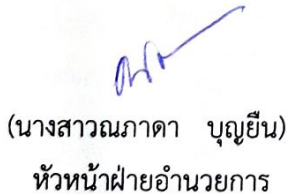 (นางสาวณภาดา บุญยืน)
หัวหน้าฝ่ายอำนวยการ